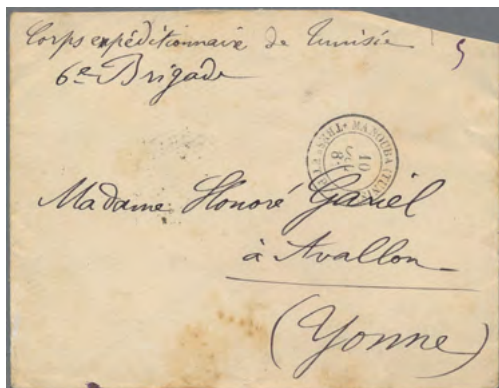 Corps expéditionnaire de Tunisie
6e Brigade
MANOUBA (TUNIS
10
Madame Honoré Gariel
à Avallon
(Yonne)